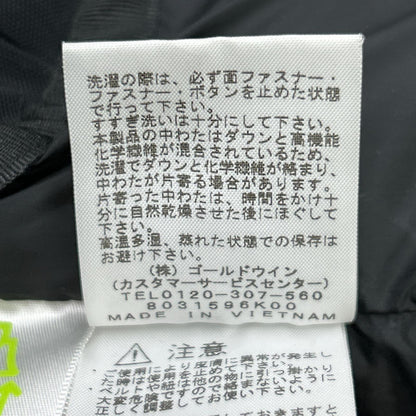 洗濯の際は、必ず面ファスナー・
ファスナー・ボタンを止めた状態
で行って下さい。
すすぎ洗いは十分にして下さい。
本製品の中わたはダウンと高機能
化学繊維が混合されているため、
洗濯でダウンと化学繊維が絡まり、
中わたが片寄る場合があります。
片寄った中わたは、時間をかけ十
分に自然乾燥させた後にほぐして
下さい。
高温多湿、蒸れた状態での保存は
お避け下さい。
(株)ゴールドウイン
(カスタマーサービスセンター)
TEL0120-307-560
8031596K00
MADE IN VIETNAM
注意